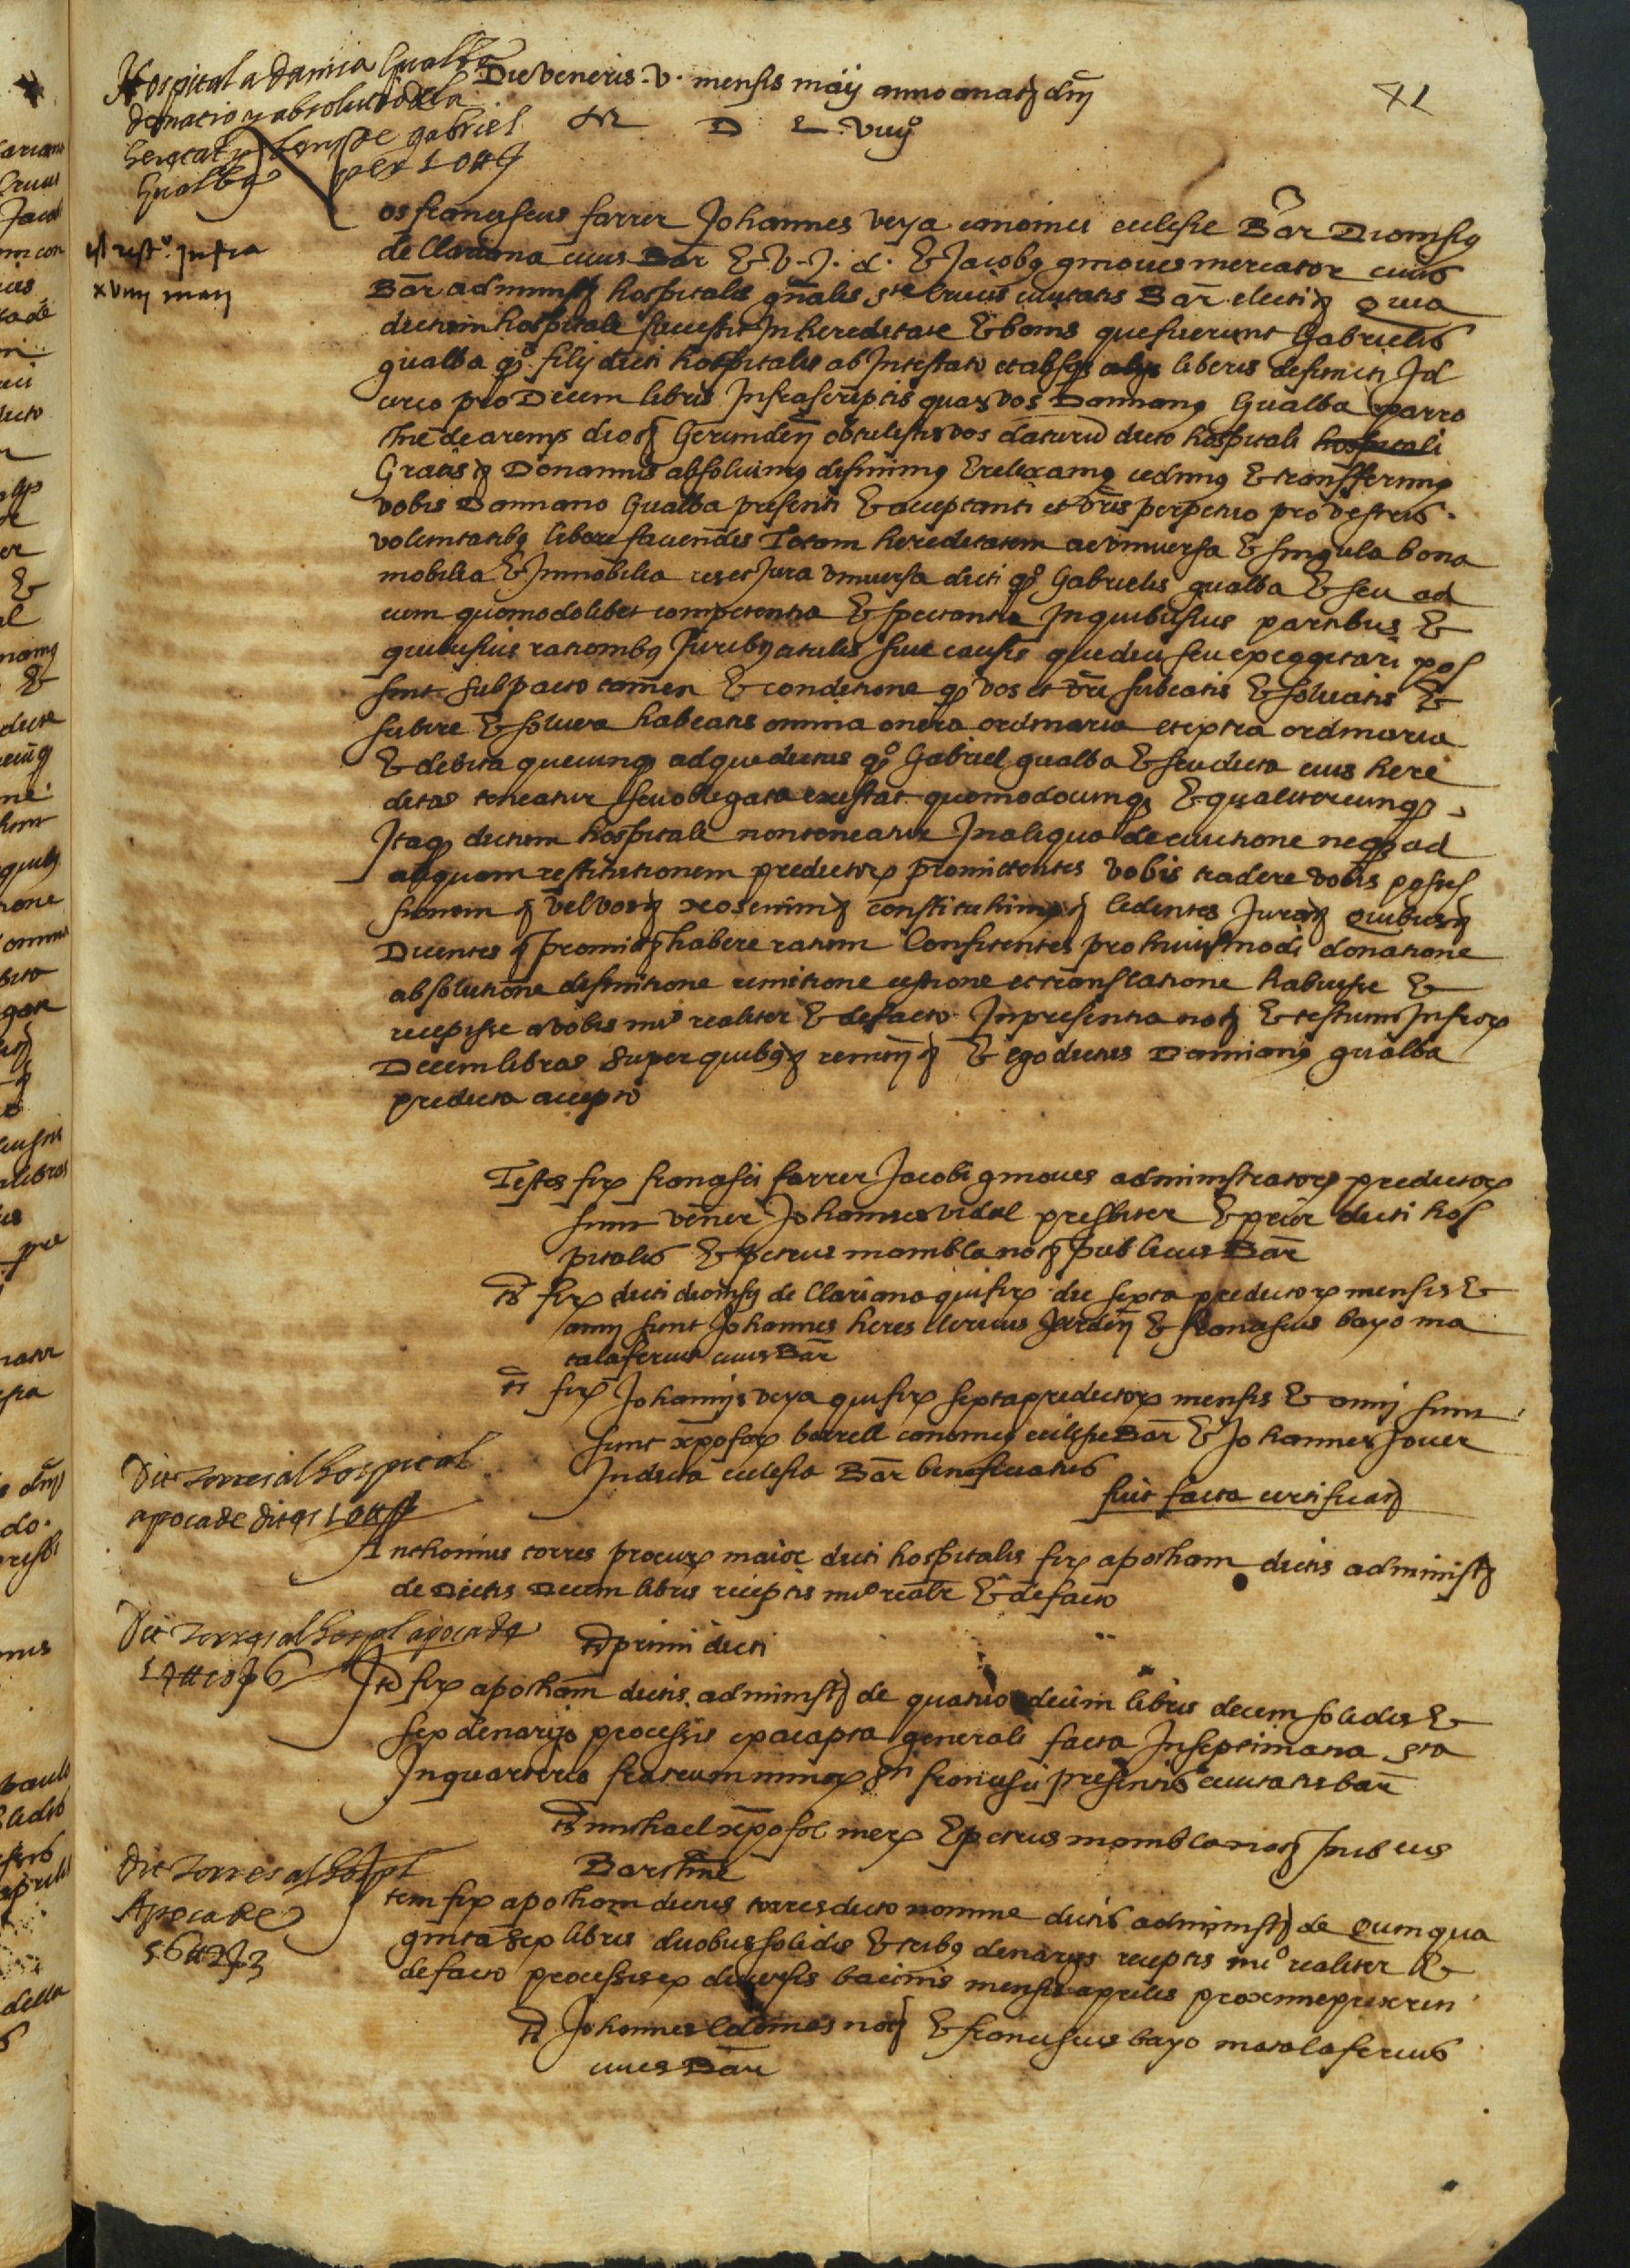 Hospital a damia gualba
donacio y absolucio de la
heretat y bens de gabriel
gualba per 10 ₶
Die veneris .v. mensis maij anno a natʒ dnj
M D L viiijº
71
est restº. Infra
xviiij maij
os franciscus farrer Johannes veya canonici ecclesie Bar Dionisiꝯ
de Clariana civis Bar & V. J. d. & Jacobꝯ gmoves mercator civis
Bar administʒ hospitalis gñalis ste crucis civitatis Bar electiʒ Quia
dictum hospitale successit In hereditate & bonis que fuerunt Gabrielis
gualba qº. filij dicti hospitalis ab Intestato et absqꝫ liberis defuncti Id
circo pro Decem libris Infrascriptis quas vos Damianꝯ Gualba parro
chie de arenys diocʒ Gerunden obtulistis vos daturū dicto hospitali hospitali
Gratisʒ Donamus absolvimꝯ definimꝯ & relexamꝯ cedimꝯ & transfferimꝯ
vobis Damiano Gualba presenti & acceptanti et vris perpetuo pro vestris
voluntatibꝯ libere faciendis Totam hereditatem ac universa & singula bona
mobilia & Inmobilia res et Jura universa dicti qº Gabrielis gualba & seu ad
eum quomodolibet competentia & spectantia In quibusvis partibus &
quibusvis rationibꝯ Juribꝯ titulis sive causis que dici seu excogitari pos
sint Sub pacto tamen & conditione qꝫ vos et vri subeatis & solvatis &
subire & solvere habeatis omnia onera ordinaria et extra ordinaria
& debita quecunqꝫ ad que dictus qº Gabriel gualba & seu dicta eius here
ditas teneatur seu obligata existat quomodocunqꝫ & qualitercunqꝫ
Itaqꝫ dictum hospitale non teneatur In aliquo de evictione neqꝫ ad
aliquam restitutionem predictorꝝ promittentes vobis tradere vobis posses
sionem ʒ vel vosʒ nos enimʒ constituhimꝯʒ Cedentes Juraʒ Quibusʒ
Dicentesʒ promittʒ habere ratum Confitentes pro huiusmodi donatione
absolutione definitione remitione cessione et translatione habuisse &
recepisse a vobis nuº realiter & de facto In presentia notʒ & testium Infrꝝ
Decem libras Super quibꝯʒ renunʒ & ego dictus Damianꝯ gualba
predicta accepto
Testes firꝝ francisci farrer Jacobi gmoves administratorꝝ predictorꝝ
sunt vener Johannes vidal presbiter & prior dicti hos
pitalis & petrus mambla notʒ publicus Bar
Ts firꝝ dicti dionisij de Clariana qui firꝝ die sexta predictorꝝ mensis &
anni sunt Johannes heres clericus & franciscus bayo ma
talaferius civis Bar
Ts firꝝ Johannis veya qui firꝝ septa predictorꝝ mensis & anni sunt
sunt xp̄oforꝝ borrell canonicꝯ ecclesie Bar & Johannes Jover
In dicta ecclesia Bar beneficiatus
fuit facta certificatʒ
Dit torres al hospital
apoca de dites 10 ₶
Anthonius torres procurꝝ maior dicti hospitalis firꝝ apocham dictis administʒ
de Dictis Decem libris receptis nuº realr & de facto
Ts primi dicti
Dit torres al hospl apoca de
14 ₶ 10 ʃ 6
Itē firꝝ apocham dictis administʒ de quatuor decim libris decem solidis &
sex denarijs processis ex acapta generali facta In septimana sta
In quarterio fratrum minorꝝ Sti francisci presentis civitatis bar
Ts michael xp̄ofol merꝝ & petrus mambla notʒ pub cives
Barchne
Dit torres al hospl
Apoca de
56 ₶ 2 ʃ 3
Item firꝝ apocham dictus torres dicto nomine dictis administʒ de Quinqua
ginta sex libris duobus solidis & tribꝯ denarijs receptis nuº realiter &
de facto processis ex diversis bacinis mensis aprilis proxime preteri
Ts Johannes Colomes notʒ & franciscus bayo matalaferius
cives Bar